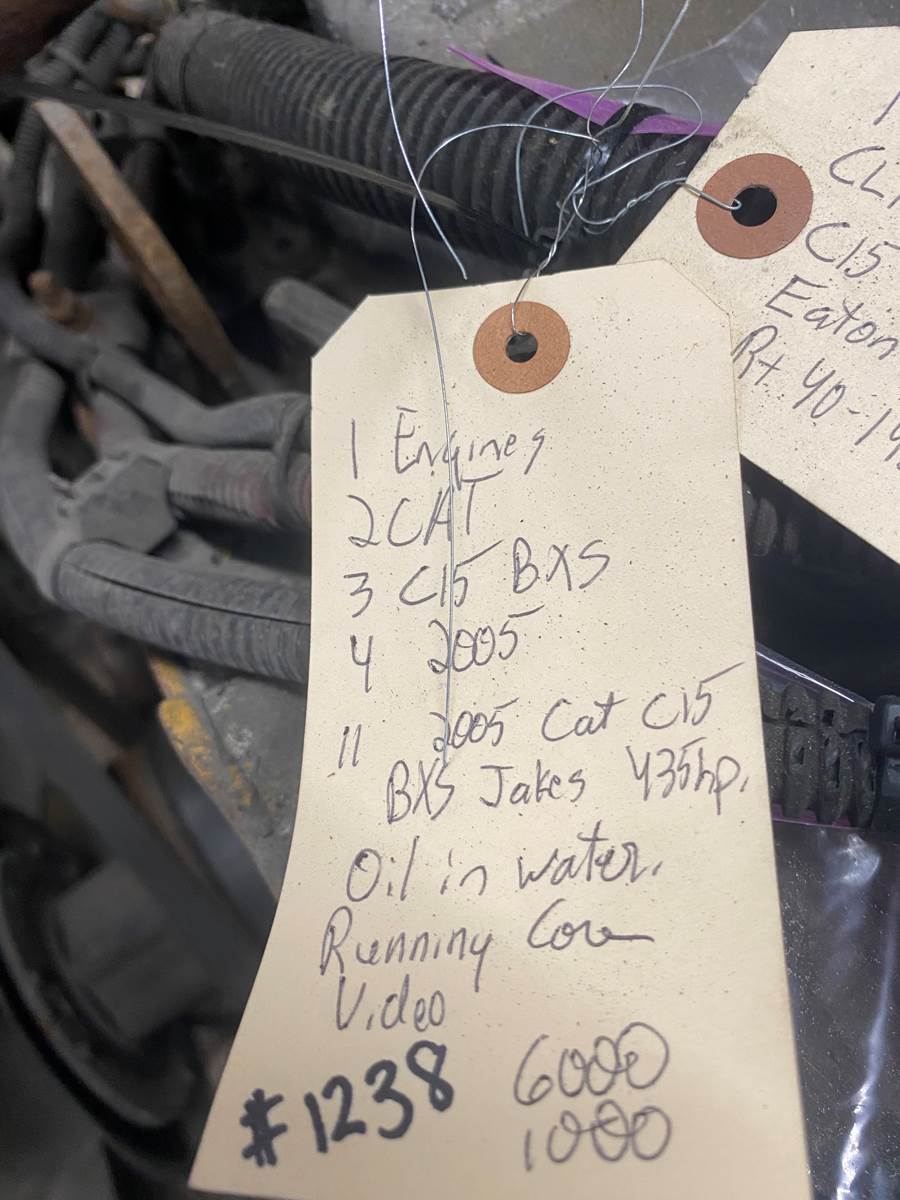 1 Engines
2 CAT
3 C15 BXS
4 2005
11 2005 Cat C15
BXS Jakes 435hp.
Oil in water.
Running Core
Video
#1238 6000
1000
C15
Eaton